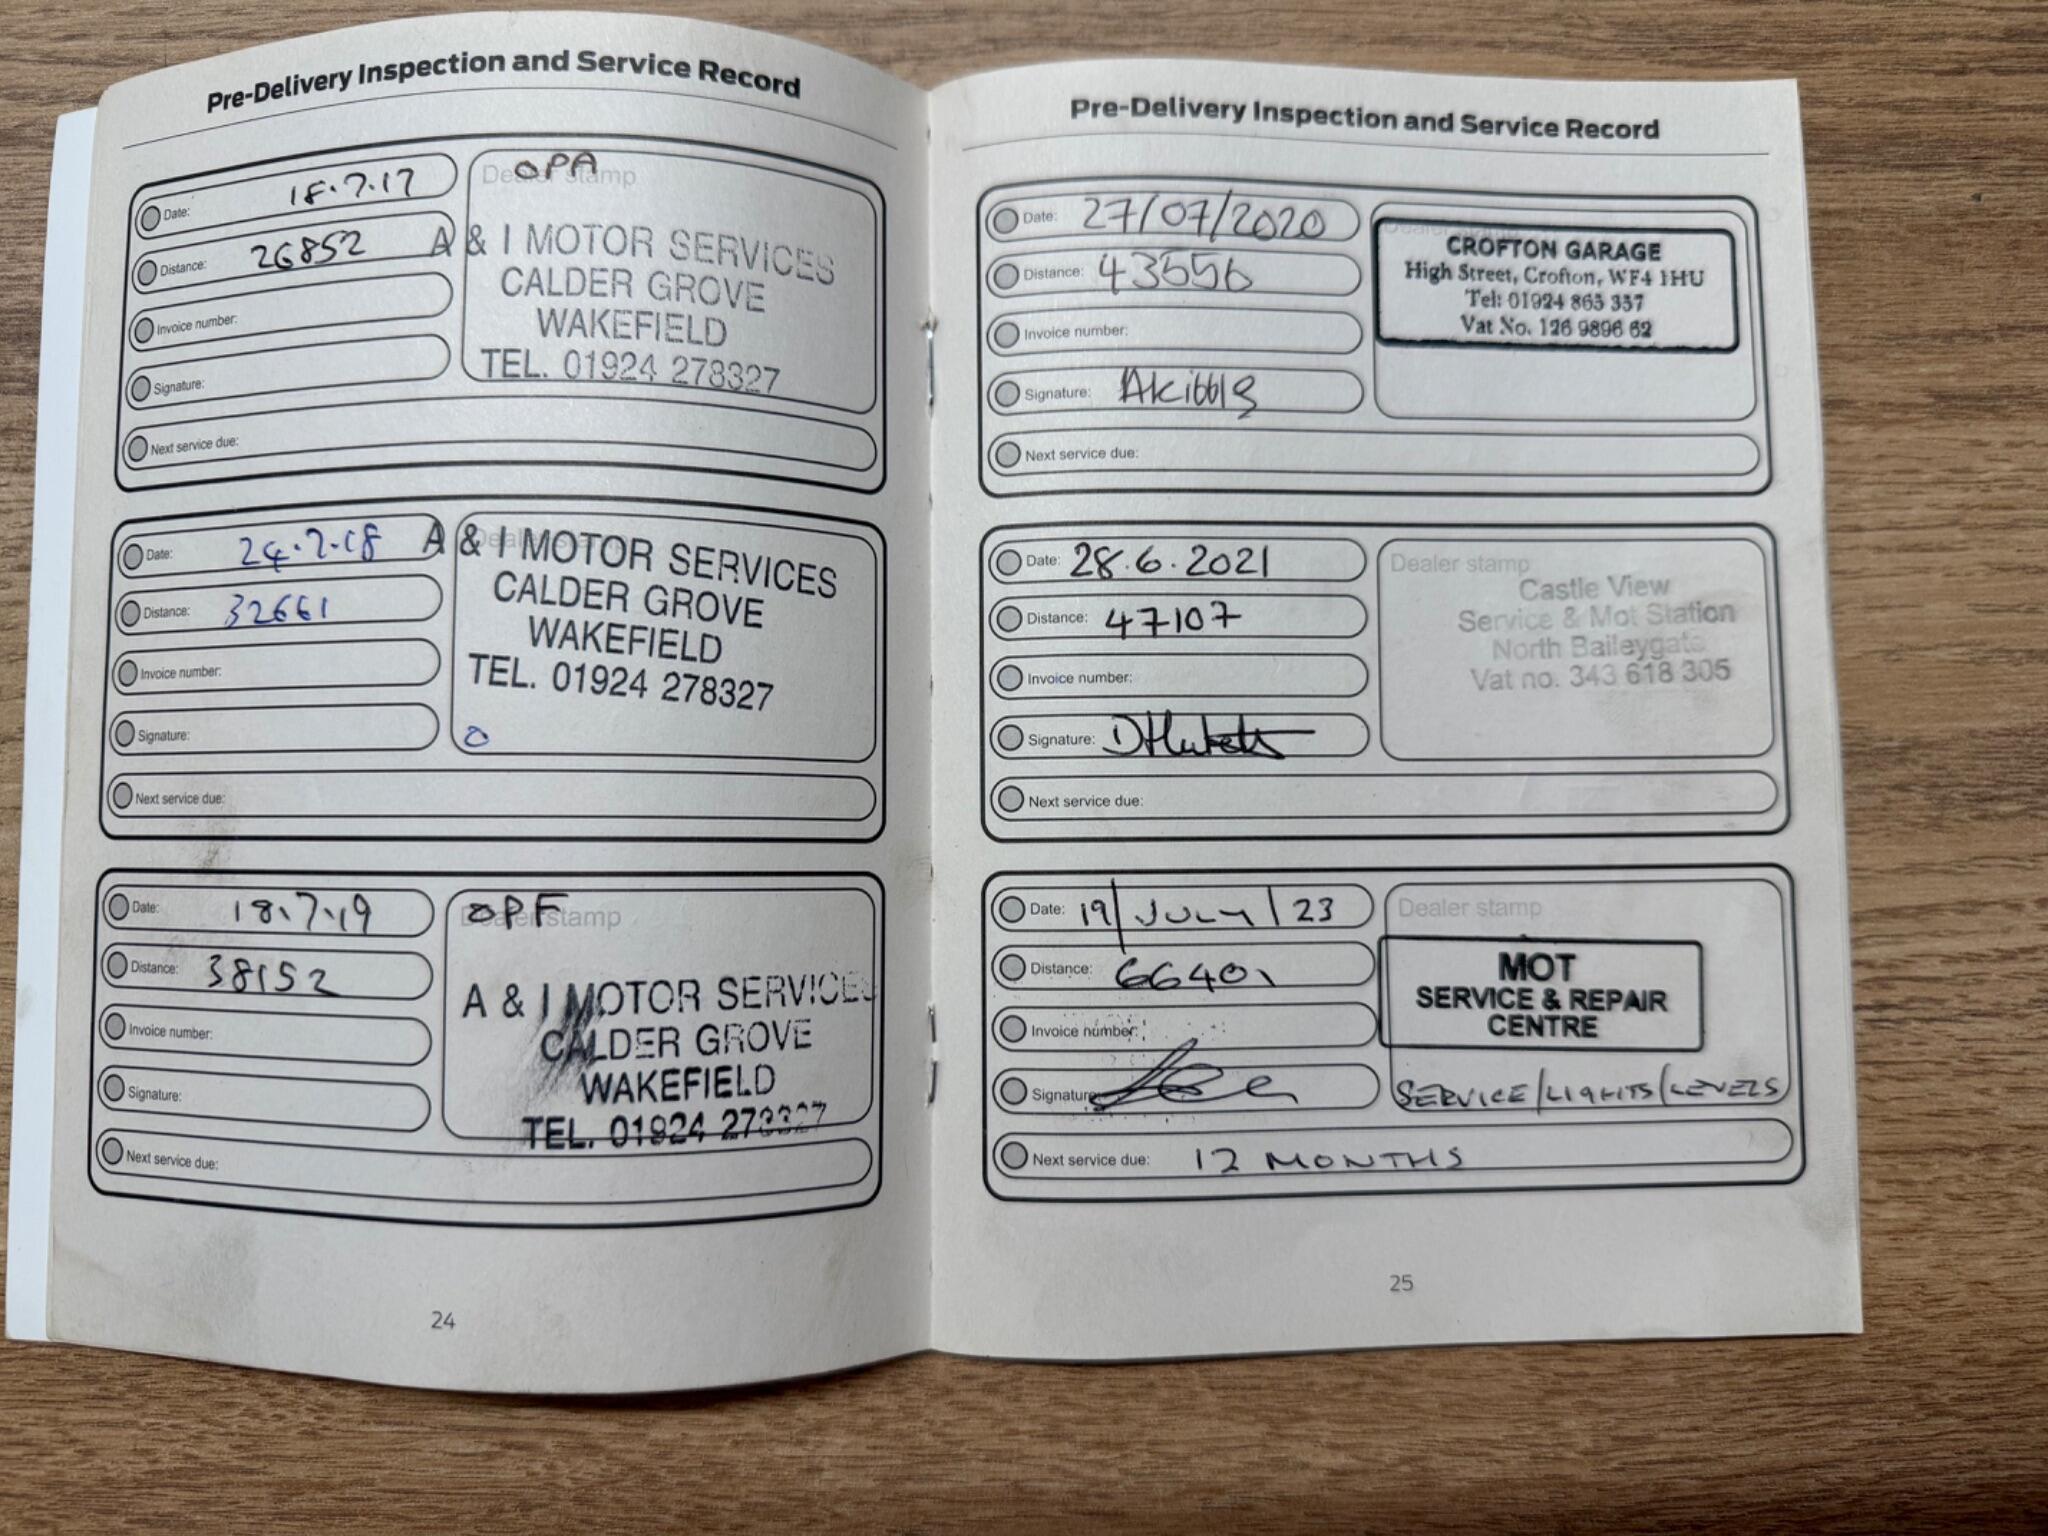 Pre-Delivery Inspection and Service Record
Date: 18.7.17
Distance: 26852
Invoice number:
Signature:
Next service due:
Dealer stamp
OPA
A & I MOTOR SERVICES
CALDER GROVE
WAKEFIELD
TEL. 01924 278327
Date: 24.7.18
Distance: 32661
Invoice number:
Signature:
Next service due:
Dealer stamp
A & I MOTOR SERVICES
CALDER GROVE
WAKEFIELD
TEL. 01924 278327
O
Date: 18.7.19
Distance: 38152
Invoice number:
Signature:
Next service due:
Dealer stamp
OPF
A & I MOTOR SERVICES
CALDER GROVE
WAKEFIELD
TEL. 01924 278327
24
Pre-Delivery Inspection and Service Record
Date: 27/07/2020
Distance:
Invoice number:
Signature:
Next service due:
Dealer stamp
CROFTON GARAGE
High Street, Crofton, WF4 1HU
Tel: 01924 865 337
Vat No. 126 9896 62
Date: 28.6.2021
Distance: 47107
Invoice number:
Signature:
Next service due:
Dealer stamp
Castle View
Service & Mot Station
North Baileygate
Vat no. 343 618 305
Date: 19/JULY/23
Distance: 66401
Invoice number:
Signature:
Next service due: 12 MONTHS
Dealer stamp
MOT
SERVICE & REPAIR
CENTRE
SERVICE/LIGHTS/LEVELS
25